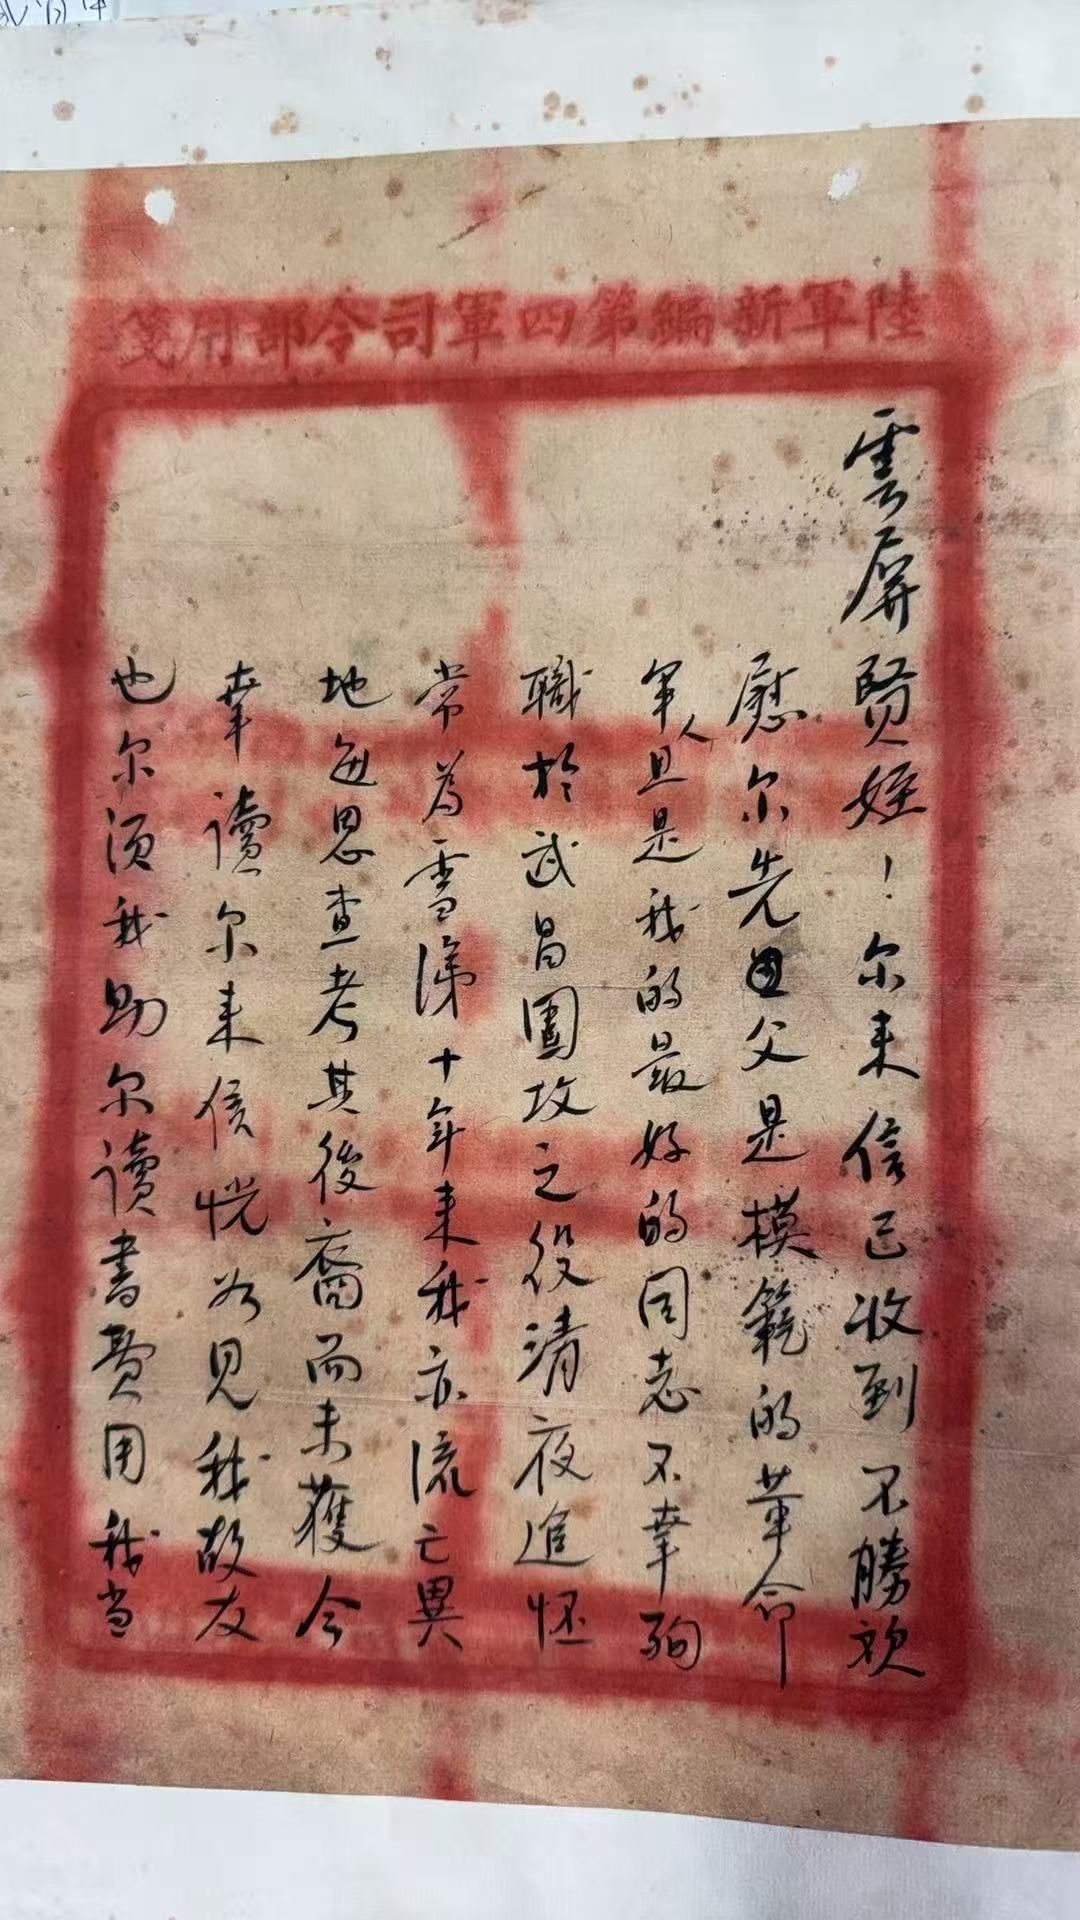 陸軍新編第四軍司令部用箋
雲屏賢姪！尔来信已收到不勝欢
慰尔先父是模範的革命
軍人且是我的最好的同志不幸殉
職於武昌圍攻之役清夜追怀
常為雪涕十年来我亦流亡異
地每思查考其後裔而未獲今
幸讀尔来信恍如見我故友
也尔須我助尔讀書費用我当